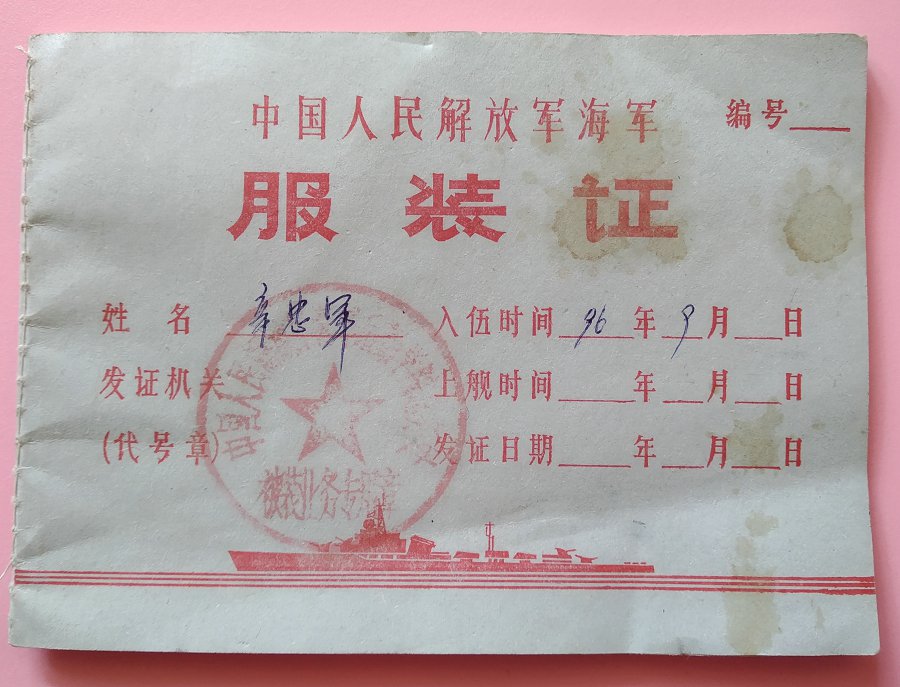 中国人民解放军海军 编号
服装证
姓名 辛忠军 入伍时间 96年9月 日
发证机关 上舰时间 年 月 日
(代号章) 发证日期 年 月 日
中国人民
被装业务专用章